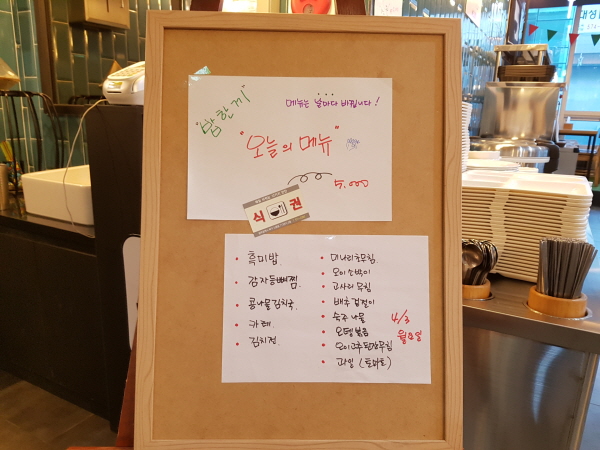 "밥한끼"
메뉴는 날마다 바뀝니다!
"오늘의 메뉴"
5,000
식 권
• 흑미밥
• 감자등뼈찜
• 콩나물김치국
• 카레
• 김치전
• 미나리초무침
• 오이소박이
• 고사리무침
• 배추겉절이
• 숙주나물
• 오뎅볶음
• 오이고추된장무침
• 과일 (토마토)
4/3
월요일
대성